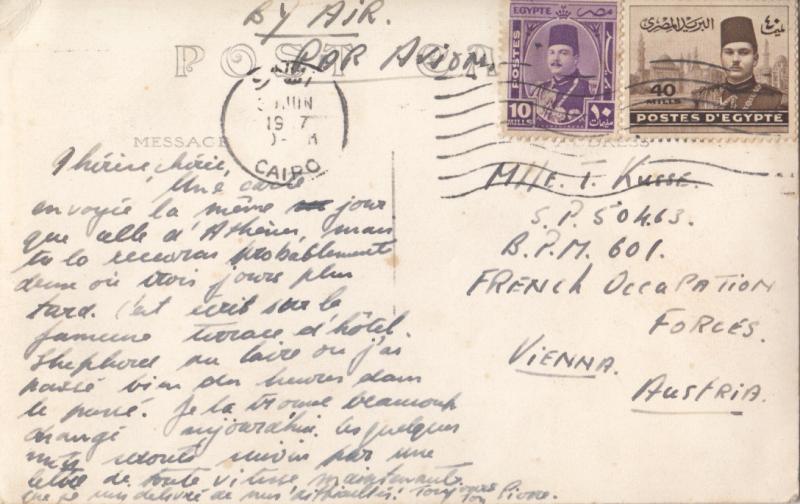 BY AIR.
PAR AVION
POST CA
EGYPTE مصر
POSTES
10 MILLS
١٠ مليمات
البريد المصرى
٤٠ مليم
40 MILLS
POSTES D'EGYPTE
JUN
CAIRO
MESSAGE
Thérèse chérie,
Une carte
envoyée la même jour
que celle d'Athènes, mais
tu la recevras probablement
deux ou trois jours plus
tard. C'est écrit sur la
fameuse terrace d'hôtel
Shepherd au Caire où j'ai
passé bien des heures dans
le passé. Je la trouve beaucoup
changé aujourd'hui. Les quelques
mots seront suivi par une
lettre de toute vitesse maintenant
que je suis délivré de mes difficultés! Toujours
ton Pierre.
Mlle. T. Kusse.
S.P. 50463.
B.P.M. 601.
FRENCH OCCUPATION
FORCES.
VIENNA.
AUSTRIA.